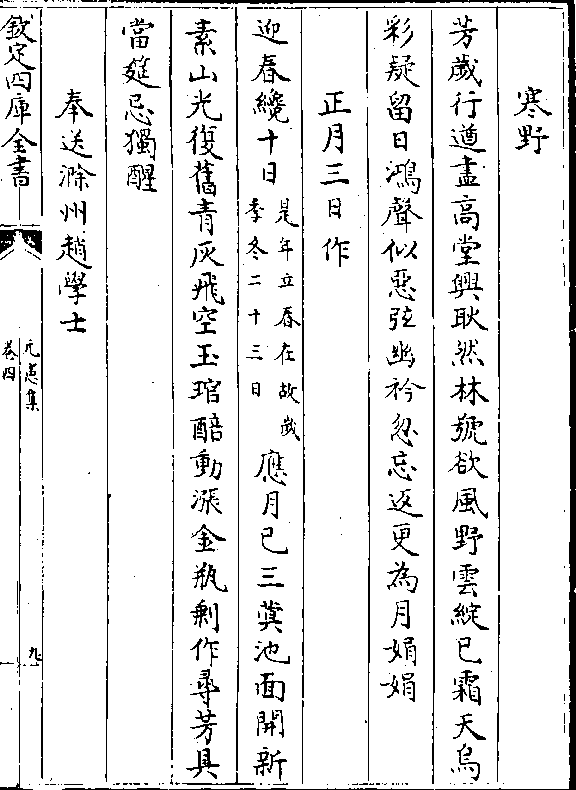 寒野
芳歲行遒盡高堂興耿然林號欲風野雲綻已霜天烏
彩疑留日鴻聲似惡弦幽衿忽忘返更為月娟娟
正月三日作
迎春纔十日是年立春在故歲季冬二十三日應月已三蓂池面開新
素山光復舊青灰飛空玉琯醅動漲金瓶剩作尋芳具
當筵忌獨醒
奉送滁州趙學士
欽定四庫全書
元憲集
卷四
九